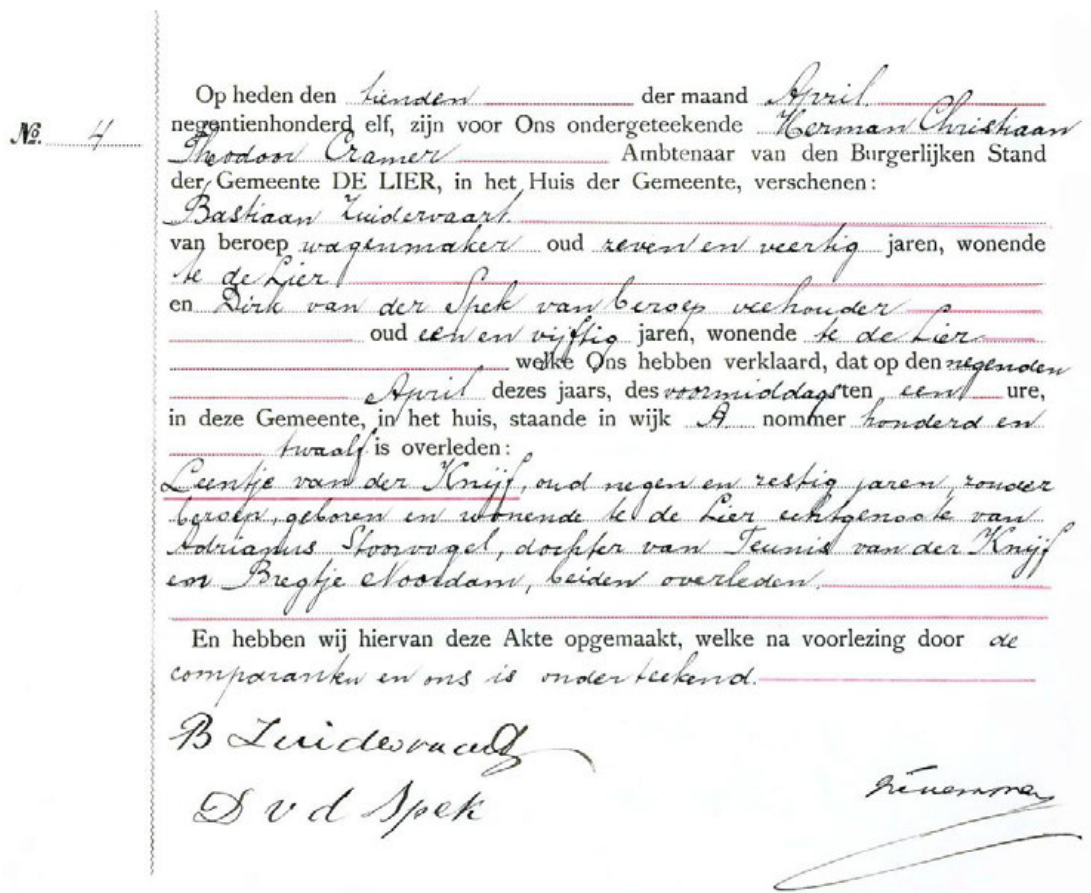 Op heden den tienden der maand April
No. 4
negentienhonderd elf, zijn voor Ons ondergeteekende Herman Christiaan
Theodoor Cramer Ambtenaar van den Burgerlijken Stand
der Gemeente DE LIER, in het Huis der Gemeente, verschenen:
Bastiaan Zuidervaart
van beroep wagenmaker oud zeven en veertig jaren, wonende
te de Lier
en Dirk van der Spek van beroep veehouder
oud een en vijftig jaren, wonende te de Lier
welke Ons hebben verklaard, dat op den negenden
April dezes jaars, des voormiddags ten een ure,
in deze Gemeente, in het huis, staande in wijk A nommer honderd en
twaalf is overleden:
Leentje van der Knijf, oud negen en zestig jaren, zonder
beroep, geboren en wonende te de Lier echtgenoote van
Adrianus Stoorvogel, dochter van Teunis van der Knijf
en Bregtje Noordam, beiden overleden.
En hebben wij hiervan deze Akte opgemaakt, welke na voorlezing door de
comparanten en ons is onderteekend.
B Zuidervaart
D v d Spek